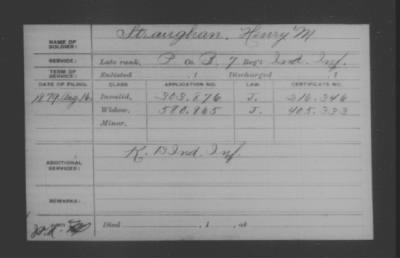 NAME OF SOLDIER: Straughan, Henry M
SERVICE: Late rank, P Co B. 7 Reg't Ind. Inf.
TERM OF SERVICE: Enlisted , 1 Discharged , 1
DATE OF FILING. CLASS. APPLICATION NO. LAW. CERTIFICATE NO.
1879 Aug 16 Invalid, 303.876 J. 216.346
Widow, 580.865 J. 405.333
Minor,
ADDITIONAL SERVICES: K. 13 Ind. Inf.
REMARKS:
Died , 1 , at